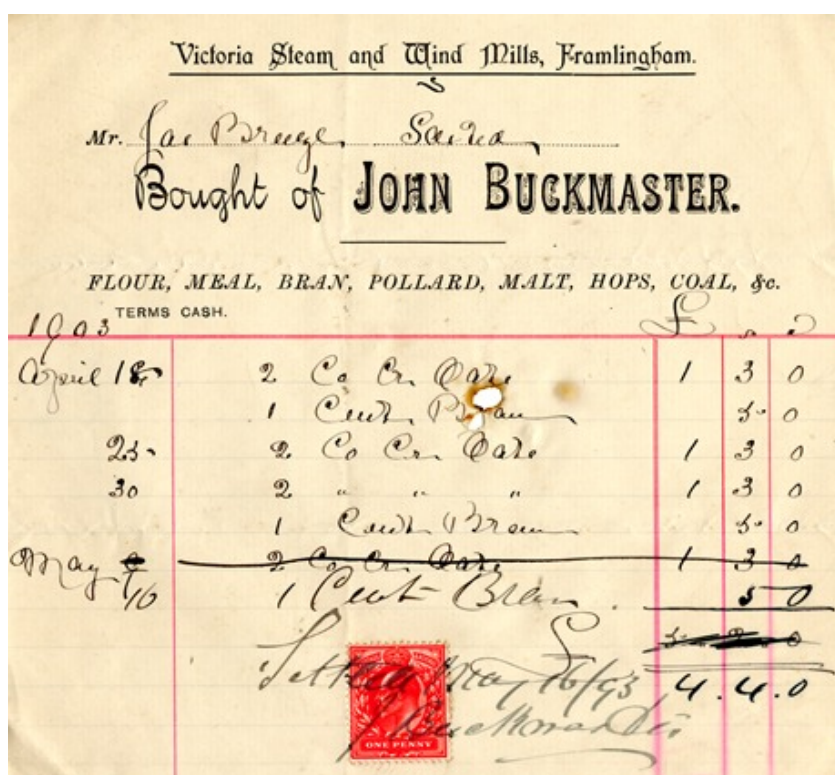 Victoria Steam and Wind Mills, Framlingham.
Mr. Jas Breeze
Bought of JOHN BUCKMASTER.
FLOUR, MEAL, BRAN, POLLARD, MALT, HOPS, COAL, &c.
TERMS CASH.
1903 £ s d
April 18 2 Co Cr. Oats 1 3 0
1 Cwt. Bran 5 0
25 2 Co Cr. Oats 1 3 0
30 2 " " " 1 3 0
1 Cwt Bran 5 0
May 2 Co Cr. Oats 1 3 0
16 1 Cwt Bran 5 0
£
Settled May 16/03 4. 4. 0
J Buckmaster
ONE PENNY